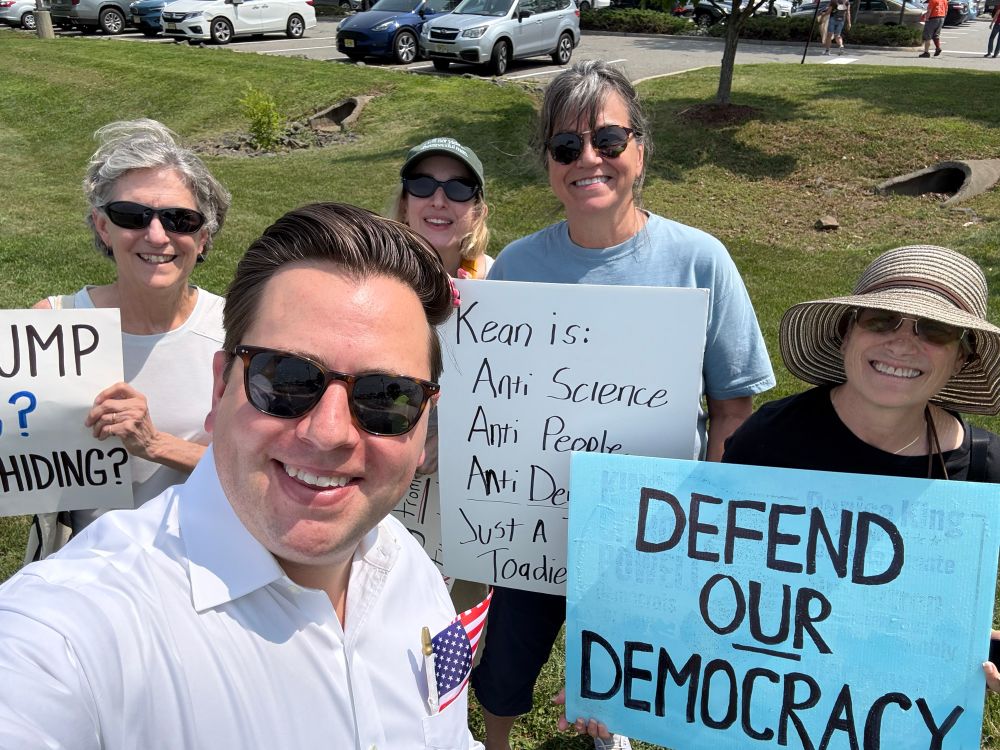 UMP
?
HIDING?
Kean is:
Anti Science
Anti People
Anti De
Just A
Toadie
DEFEND
OUR
DEMOCRACY